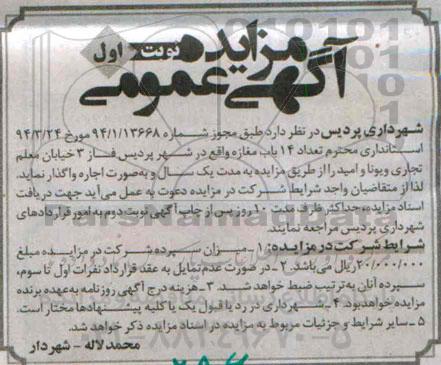 آگهی مزایده عمومی
نوبت اول
شهرداری پردیس در نظر دارد طبق مجوز شماره ۹۴/۱/۱۳۶۶۸ مورخ ۹۴/۳/۲۴
استانداری محترم تعداد ۱۴ باب مغازه واقع در شهر پردیس فاز ۳ خیابان معلم
تجاری ویونا و امید را از طریق مزایده به مدت یک سال و به‌صورت اجاره واگذار نماید.
لذا از متقاضیان واجد شرایط شرکت در مزایده دعوت به عمل می‌آید جهت دریافت
اسناد مزایده، حداکثر ظرف مدت ۱۰ روز پس از چاپ آگهی نوبت دوم به امور قراردادهای
شهرداری پردیس مراجعه نمایند.
شرایط شرکت در مزایده: ۱- میزان سپرده شرکت در مزایده مبلغ
۲۰/۰۰۰/۰۰۰ ریال می‌باشد. ۲- در صورت عدم تمایل به عقد قرارداد نفرات اول تا سوم،
سپرده آنان به ترتیب ضبط خواهد شد. ۳- هزینه درج آگهی روزنامه به‌عهده برنده
مزایده خواهد بود. ۴- شهرداری در رد یا قبول یک یا کلیه پیشنهادها مختار است.
۵- سایر شرایط و جزئیات مربوط به مزایده در اسناد مزایده ذکر خواهد شد.
محمد لاله - شهردار
ParsNamadData